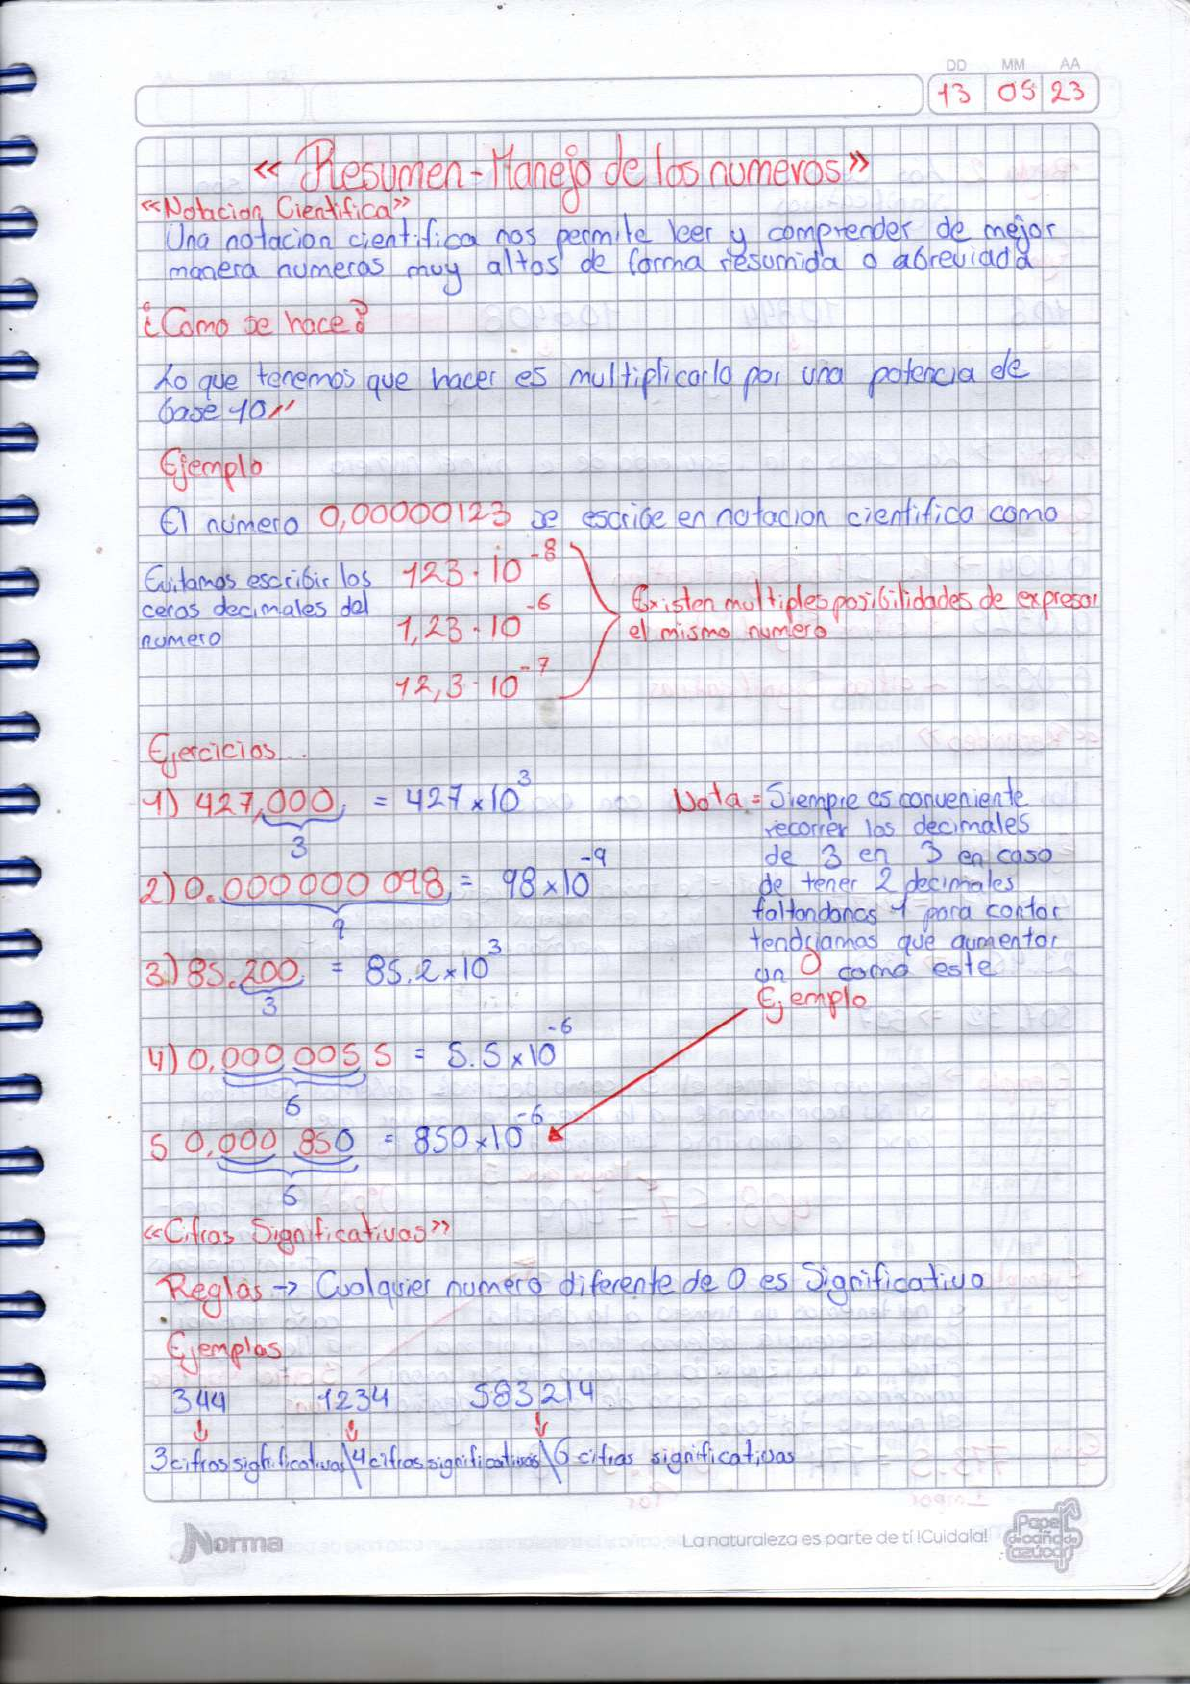 DD MM AA
13 05 23
«Resumen - Manejo de los numeros»
«Notacion Cientifica»
Una notacion cientifica nos permite leer y comprender de mejor
manera numeros muy altos de forma resumida o abreviada
¿Como se hace?
Lo que tenemos que hacer es multiplicarlo por una potencia de
base 10"
Ejemplo
El numero 0,00000123 se escribe en notacion cientifica como
Evitamos escribir los
ceros decimales del
numero
123 · 10^-8
1,23 · 10^-6
12,3 · 10^-7
Existen multiples posibilidades de expresar
el mismo numero
Ejercicios...
1) 427,000, = 427 x 10^3
3
2) 0.000 000 098 = 98 x 10^-9
9
3) 85.200 = 85.2 x 10^3
3
4) 0,000 005 5 = 5.5 x 10^-6
6
5 0,000 850 = 850 x 10^-6
6
Nota = Siempre es conveniente
recorrer los decimales
de 3 en 3 en caso
de tener 2 decimales
faltandonos 1 para contar
tendriamos que aumentar
un 0 como este
Ejemplo
«Cifras Significativas»
Reglas → Cualquier numero diferente de 0 es Significativo
Ejemplos
344 1234 583214
↓ ↓ ↓
3 cifras significativas\4 cifras significativas\6 cifras significativas
Norma
La naturaleza es parte de ti !Cuidala!
Papel
de caña de
azúcar